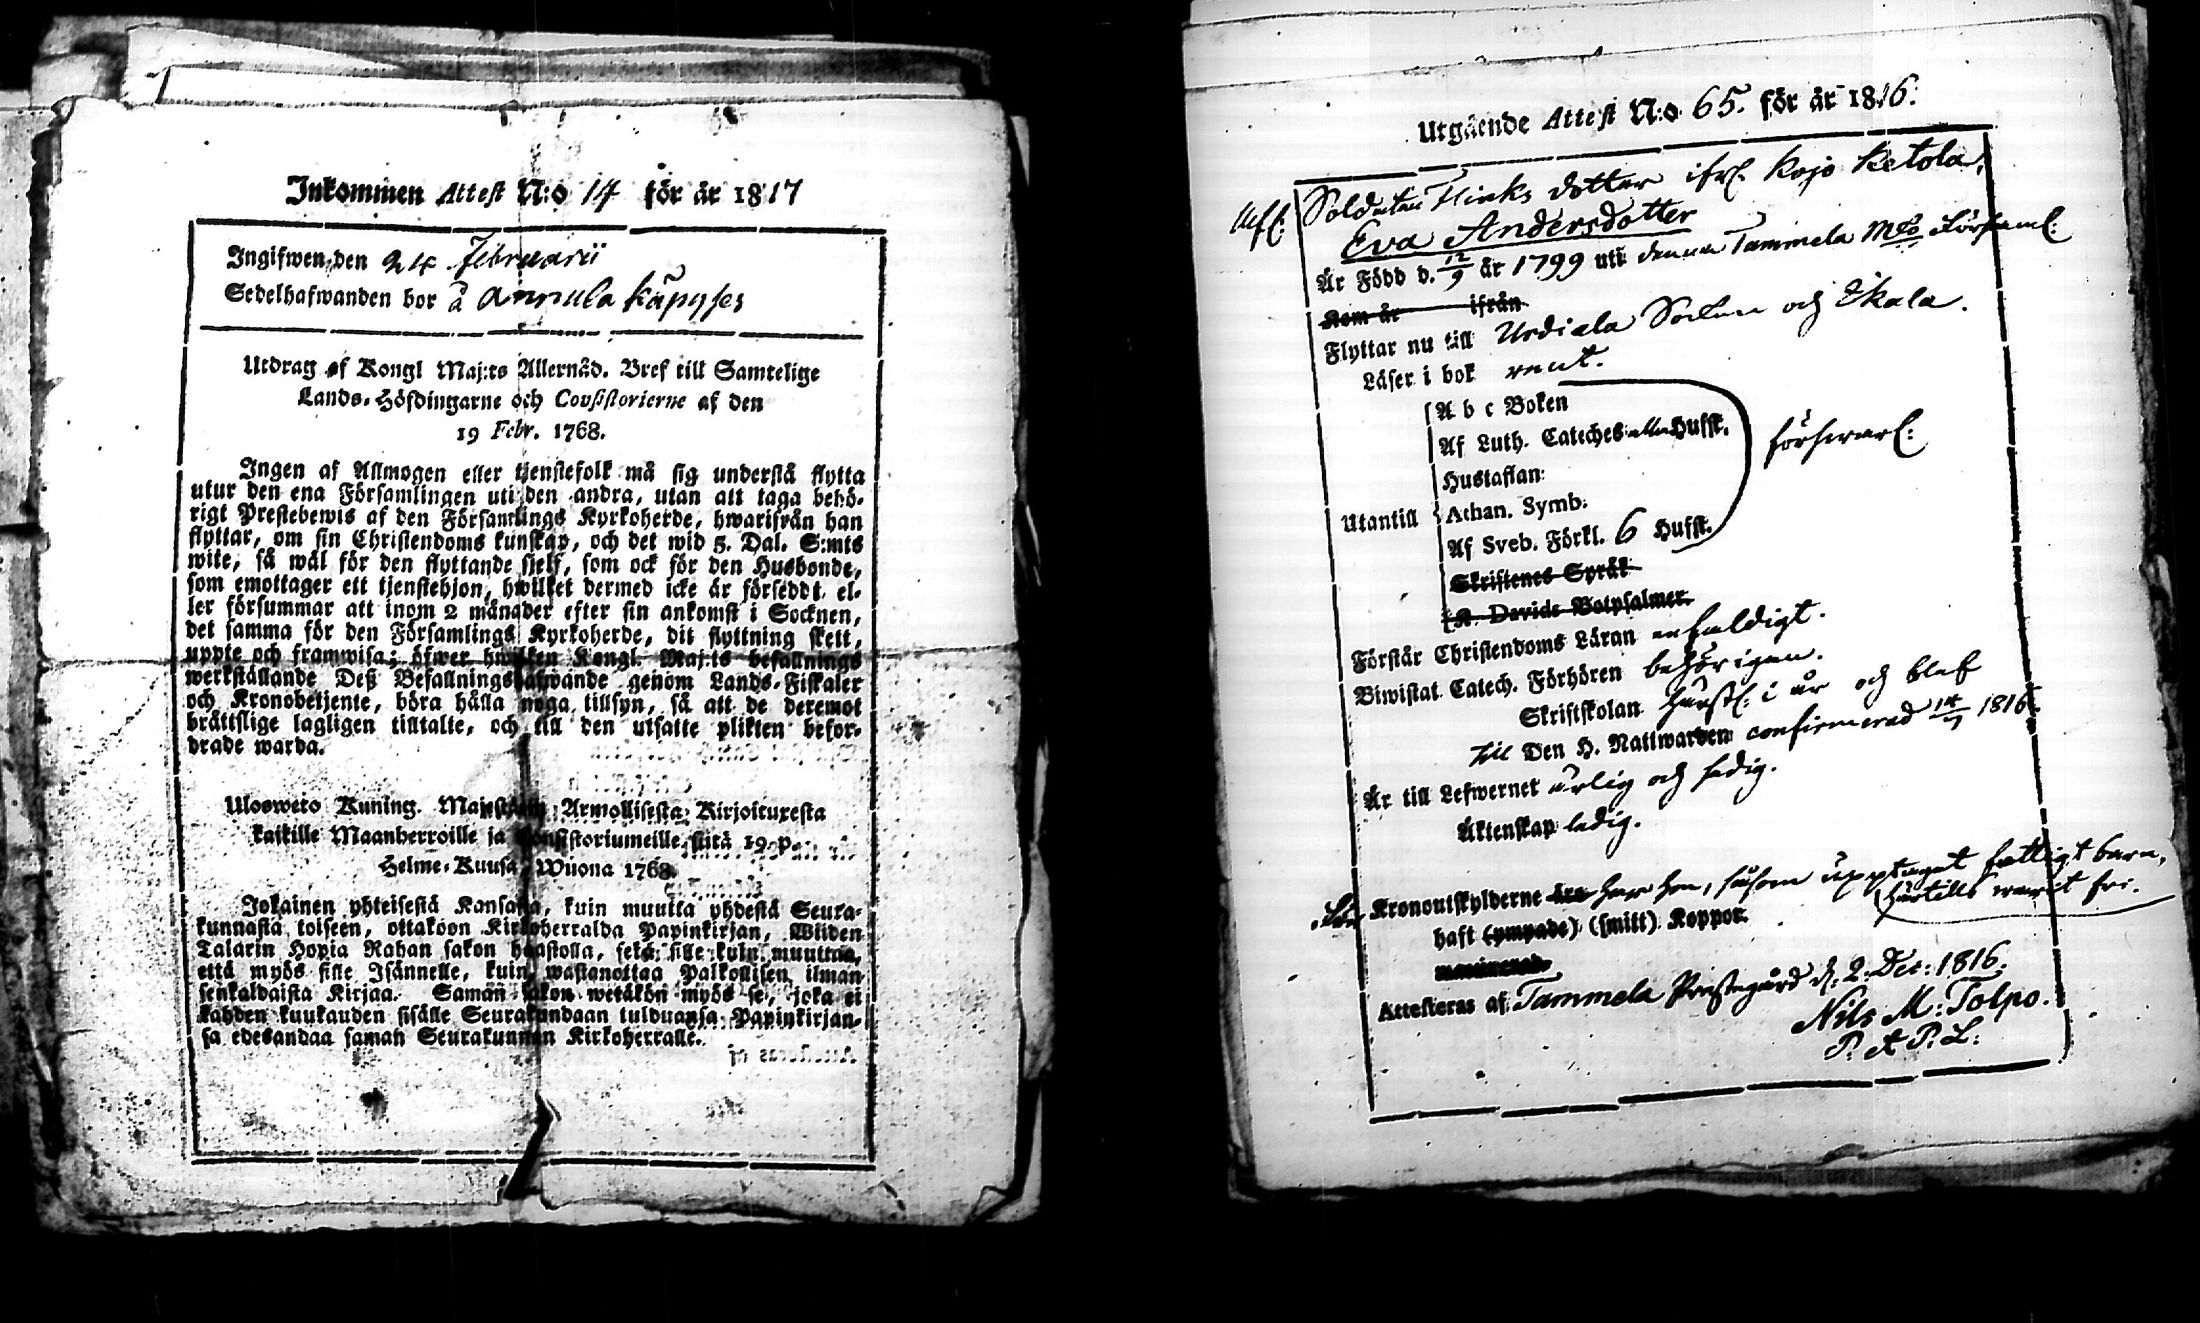 Inkommen Attest N:o 14 för år 1817
Ingifwen den 24 Februarii
Sedelhafwanden bor å Annula Käpyses
Utdrag af Kongl Maj:ts Allernåd. Bref till Samtelige
Lands-Höfdingarne och Consistorierne af den
19 Febr. 1768.
Ingen af Allmogen eller tjenstefolk må sig understå flytta
utur den ena Församlingen uti den andra, utan att taga behö-
rigt Prestebewis af den Församlings Kyrkoherde, hwarifrån han
flyttar, om sin Christendoms kunskap, och det wid 5. Dal. S:mts
wite, så wäl för den flyttande sjelf, som ock för den Husbonde,
som emottager ett tjenstehjon, hwilket dermed icke är försedt, el-
ler försummar att inom 2 månader efter sin ankomst i Socknen,
det samma för den Församlings Kyrkoherde, dit flyttning skett,
uppte och framwisa; öfwer hwilken Kongl. Maj:ts befallnings
werkställande Deß Befallningshafwande genom Lands-Fiskaler
och Kronobetjente, böra hålla noga tillsyn, så att de deremot
brättslige lagligen tilltalte, och till den utsatte plikten befor-
drade warda.
Uloswето Kuning. Majestetin Armollisesta Kirjoituxesta
kaikille Maanherroille ja Consistoriumeille siitä 19 p.
Helme-Kuusa Wuona 1768.
Jokainen yhteisestä Kansasta, kuin muutta yhdestä Seura-
kunnasta toiseen, ottakoon Kirkoherralda Papinkirjan, Wiiden
Talarin Hopia Rahan sakon haastolla, sekä sille kuin muuttaa,
että myös sille Isännelle, kuin wastanottaa Palkollisen ilman
senkaldaista Kirjaa. Samän sakon wetäkön myös se, joka ei
kahden kuukauden sisälle Seurakundaan tulduansa Papinkirjan-
sa edesandaa saman Seurakunnan Kirkoherralle.
Utgående Attest N:o 65. för år 1816.
Soldaten Flinks dotter ifr. Kojo Ketola,
Eva Andersdotter
Är Född d. 12/9 år 1799 uti denna Tammela Mo Församl:
Kom år ifrån
Flyttar nu till Urdiala Socken och Ekala.
Läser i bok rent.
A b c Boken
Af Luth. Cateches alla Hufst.
Hustaflan
Utantill Athan. Symb.
Af Sveb. Förkl. 6 Hufst.
försvarl:
Skriftenes Språk
K. Davids Botpsalmer.
Förstår Christendoms Läran enfaldigt.
Biwistat Catech. Förhören behörigen.
Skriftskolan i år och blef
till Den H. Nattwarden confirmerad 14/7 1816.
Är till Lefwernet ärlig och sedig.
Äktenskap ledig.
Kronoutskylderne är har hon, såsom upptaget fattigt barn,
härtills warit fri.
haft (ympade) (smitt) Koppor.
Attesteras af Tammela Prestegård d. 2. Dec: 1816.
Nils M: Tolpo.
P. A P. L: